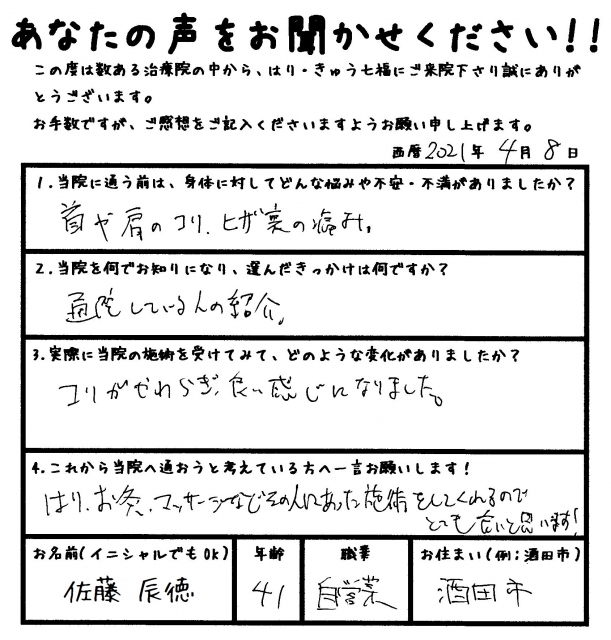 あなたの声をお聞かせください!!
この度は数ある治療院の中から、はり・きゅう七福にご来院下さり誠にありが
とうございます。
お手数ですが、ご感想をご記入くださいますようお願い申し上げます。
西暦 2021 年 4 月 8 日
1.当院に通う前は、身体に対してどんな悩みや不安・不満がありましたか?
首や肩のコリ、ヒザ裏の痛み。
2.当院を何でお知りになり、選んだきっかけは何ですか?
通院している人の紹介。
3.実際に当院の施術を受けてみて、どのような変化がありましたか?
コリがやわらぎ、良い感じになりました。
4.これから当院へ通おうと考えている方へ一言お願いします!
はり、お灸、マッサージなどその人にあった施術をしてくれるので
とても良いと思います!
お名前(イニシャルでもOK) 年齢 職業 お住まい(例:酒田市)
佐藤 辰徳 41 自営業 酒田市